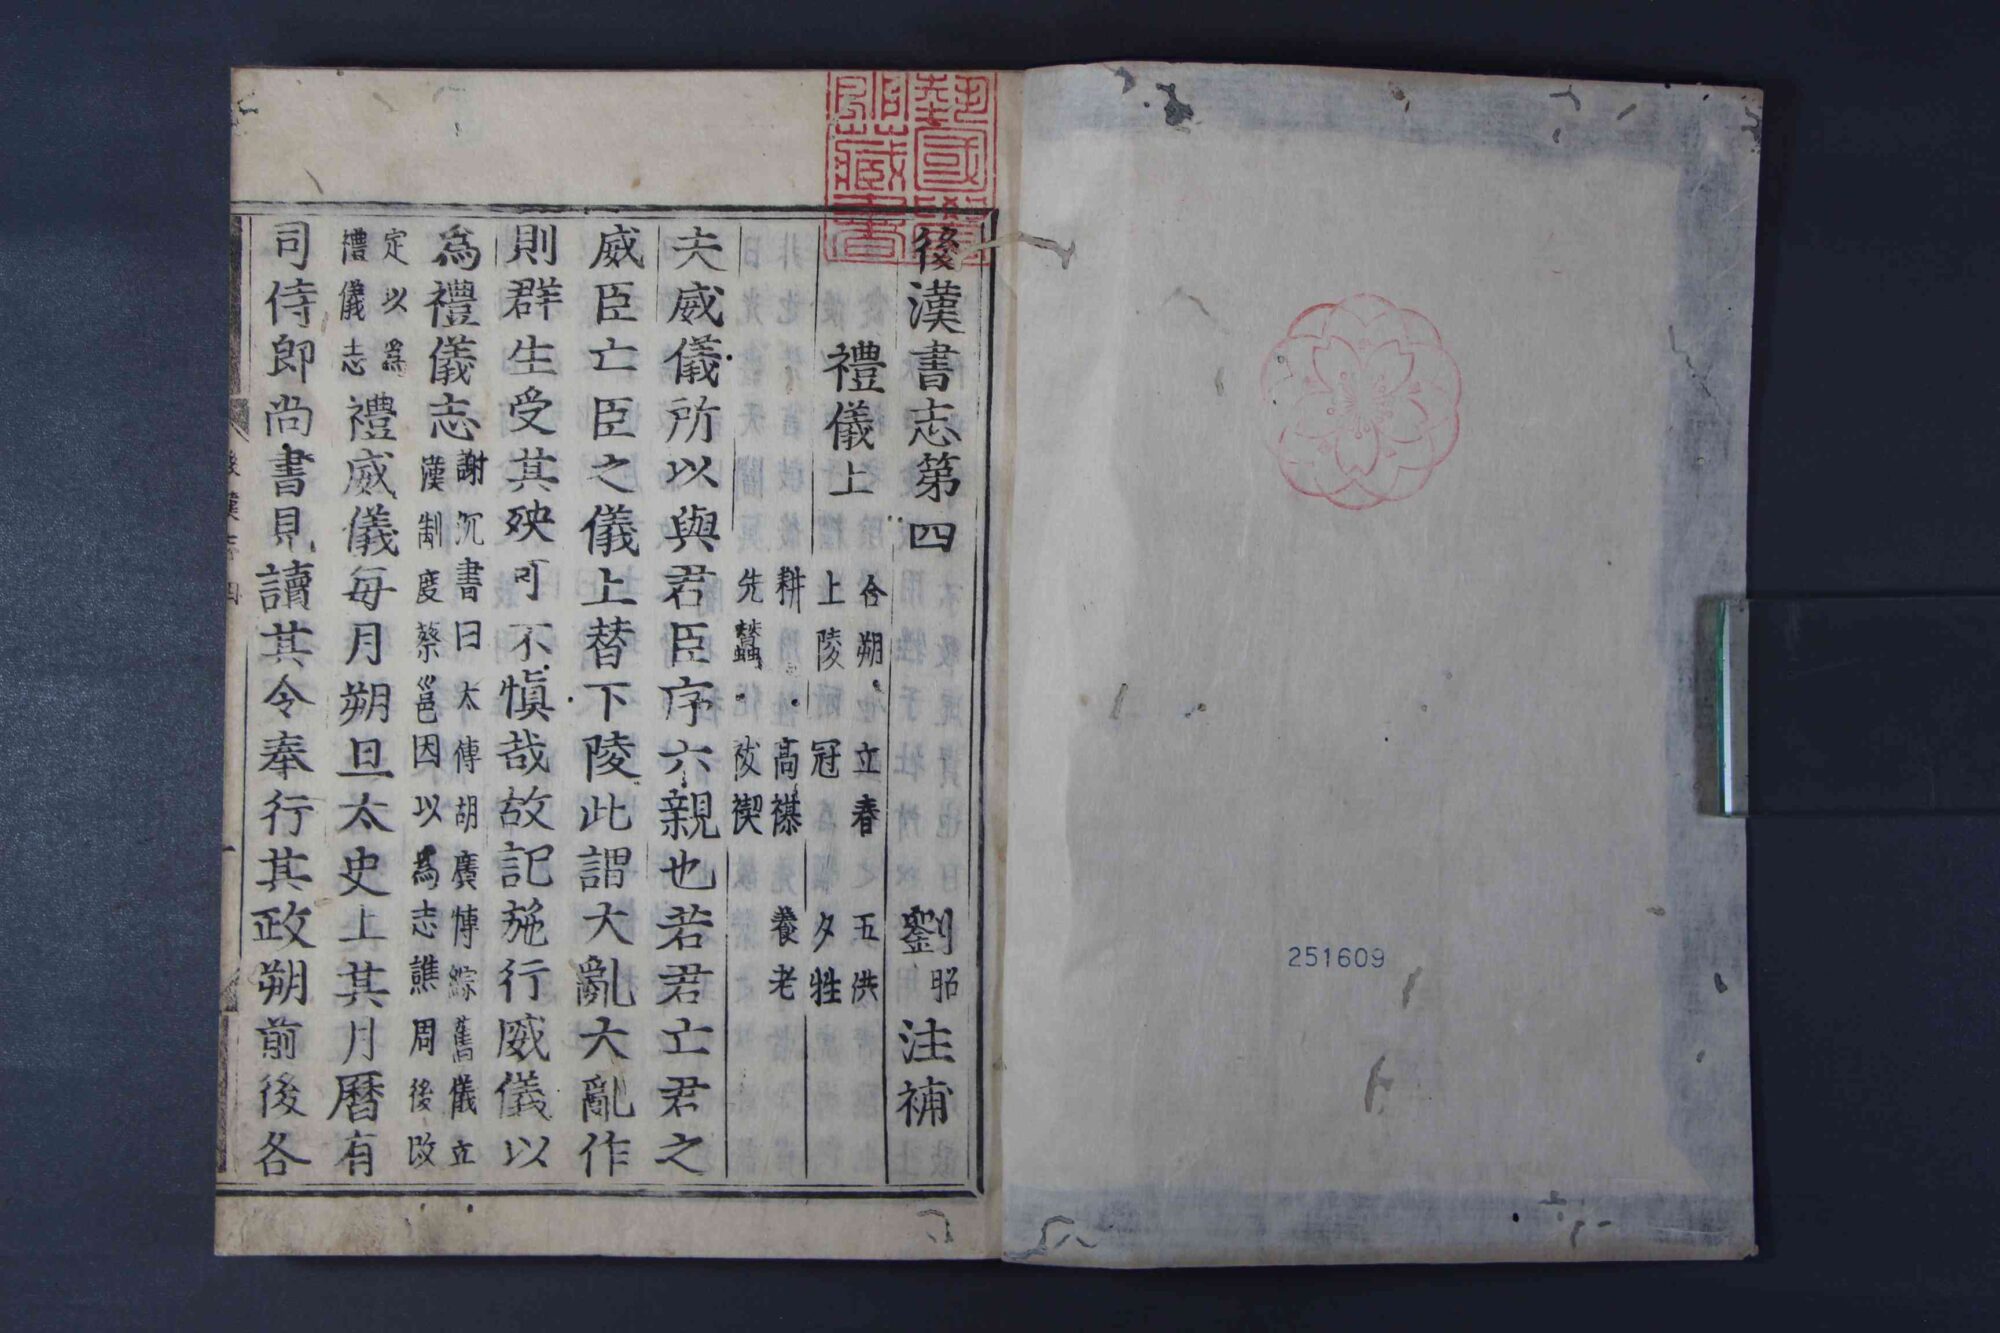 251609
後漢書志第四 劉昭注補
禮儀上
合朔 立春 五供
上陵 冠 夕牲
耕 高禖 養老
先蠶 祓禊
夫威儀所以與君臣序六親也若君亡君之
威臣亡臣之儀上替下陵此謂大亂大亂作
則群生受其殃可不愼哉故記施行威儀以
爲禮儀志
謝沉書曰太傅胡廣博綜舊儀立
漢制度蔡邕因以爲志譙周後改
定以爲
禮儀志
禮威儀每月朔旦太史上其月曆有
司侍郎尚書見讀其令奉行其政朔前後各